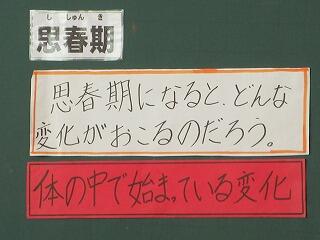 ししゅんき
思春期
思春期になると、どんな
変化がおこるのだろう。
体の中で始まっている変化